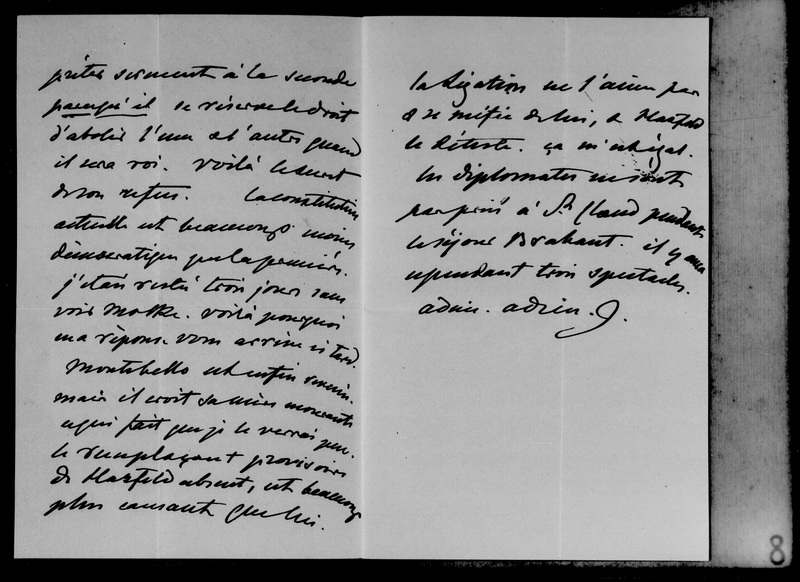 prêter serment à la seconde
parcequ'il se réserve le droit
d'abolir l'une et l'autre quand
il sera roi. Voilà le secret
de son refus. La constitution
actuelle est beaucoup moins
démocratique que la première.
j'étais resté trois jours sans
voir Molke. voilà pourquoi
ma réponse vous arrive si tard.
Montebello est enfin
mais il croit sa mère mourante
ce qui fait que je le verrai peu.
le remplaçant provisoire
de Hazfeld absent, est beaucoup
plus causant que lui.
la légation ne l'aime pas
& se méfie de lui, & Hazfeld
le déteste. ça m'est égal.
les diplomates ne sont
pas priés à St Cloud pendant
le séjour Brabant. il y aura
cependant trois spectacles.
adieu. adieu.
8